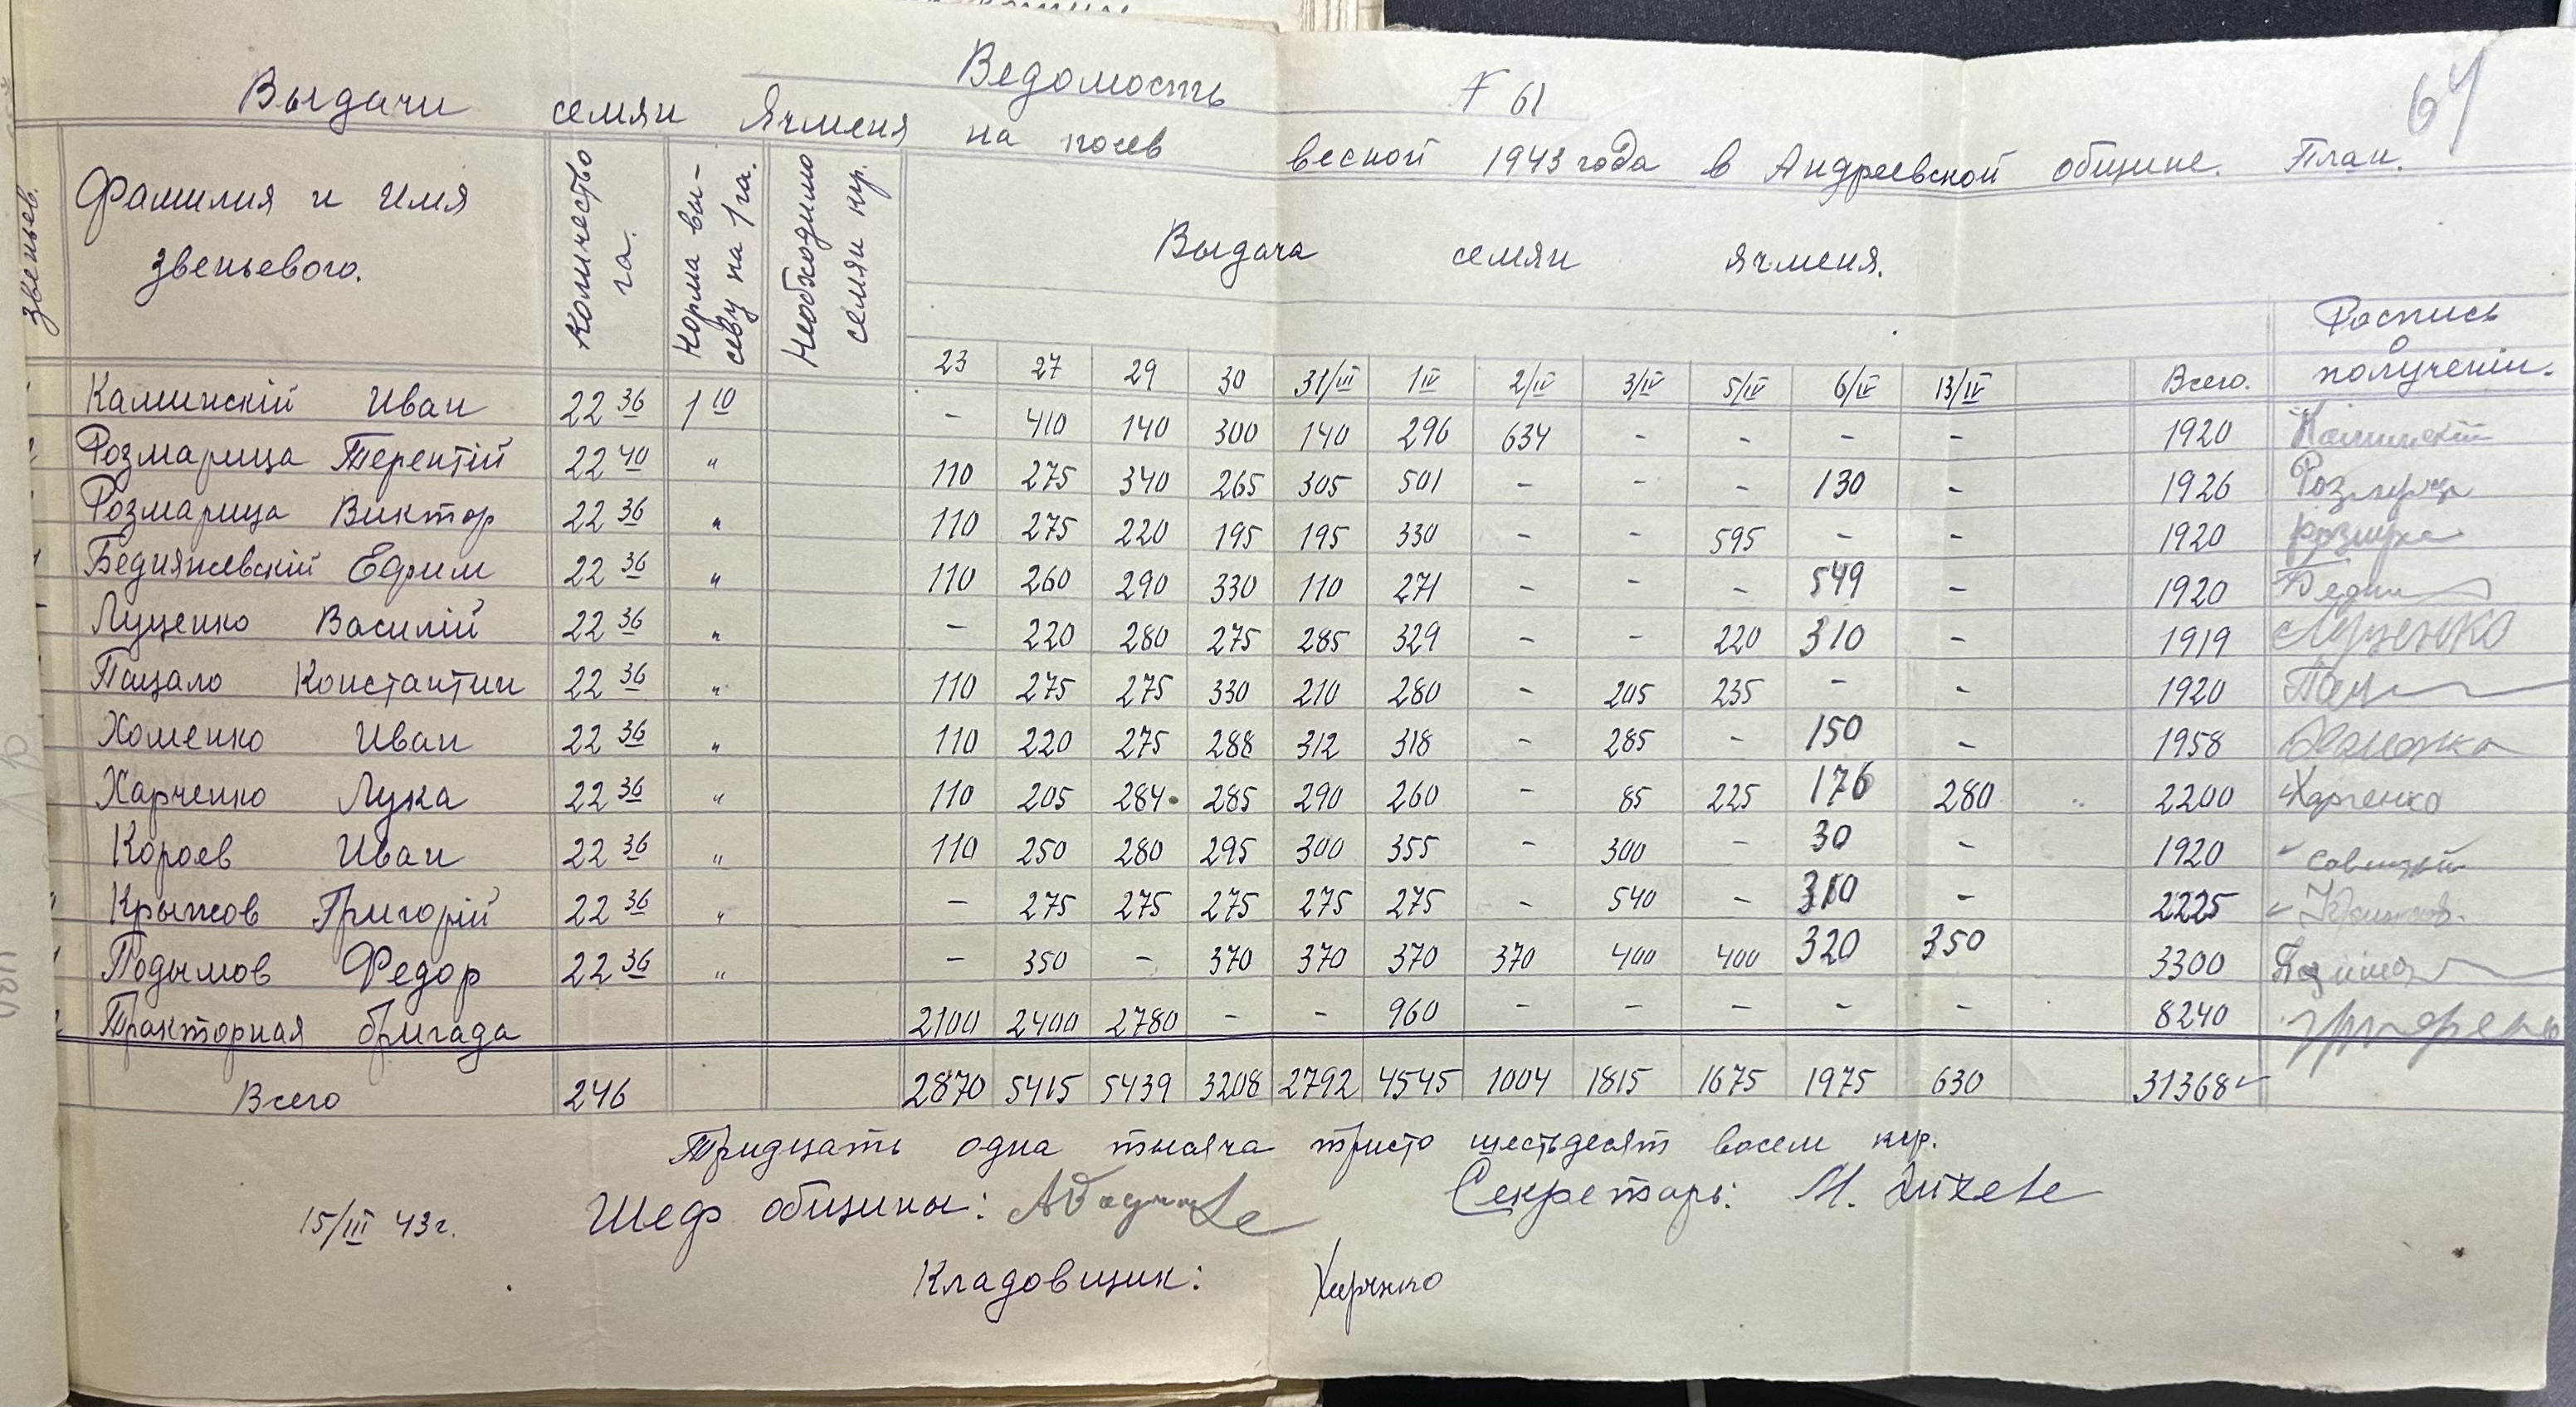 Ведомость № 61
64
Выдачи семян Ячменя на посев весной 1943 года в Андреевской общине. План.
звеньев. Фамилия и Имя звеньевого. Количество га. Норма высеву на 1 га. Необходимо семян кгр. Выдача семян ячменя. Роспись о полученіи.
23 27 29 30 31/III 1 IV 2/IV 3/IV 5/IV 6/IV 13/IV Всего.
Каминскій Иван 22 36 1 10 - 410 140 300 140 296 634 - - - - 1920 Каминскій
Розмарица Терентій 22 40 " 110 275 340 265 305 501 - - - 130 - 1926
Розмарица Виктор 22 36 " 110 275 220 195 195 330 - - 595 - - 1920
Бедняжевскій Ефрим 22 36 " 110 260 290 330 110 271 - - - 549 - 1920 Бедн
Луценко Василій 22 36 " - 220 280 275 285 329 - - 220 310 - 1919 Луценко
Пацало Константин 22 36 " 110 275 275 330 210 280 - 205 235 - - 1920 Пац
Хоменко Иван 22 36 " 110 220 275 288 312 318 - 285 - 150 - 1958
Харченко Лука 22 36 " 110 205 284 285 290 260 - 85 225 176 280 2200 Харченко
Короев Иван 22 36 " 110 250 280 295 300 355 - 300 - 30 - 1920
Крыжов Григорій 22 36 " - 275 275 275 275 275 - 540 - 310 - 2225
Подымов Федор 22 36 " - 350 - 370 370 370 370 400 400 320 350 3300
Тракторная бригада 2100 2400 2780 - - 960 - - - - - 8240
Всего 246 2870 5415 5439 3208 2792 4545 1004 1815 1675 1975 630 31368
Тридцать одна тысяча тристо шестьдесят восем кгр.
15/III 43 г. Шеф общины: Секретарь: М.
Кладовщик: Харченко